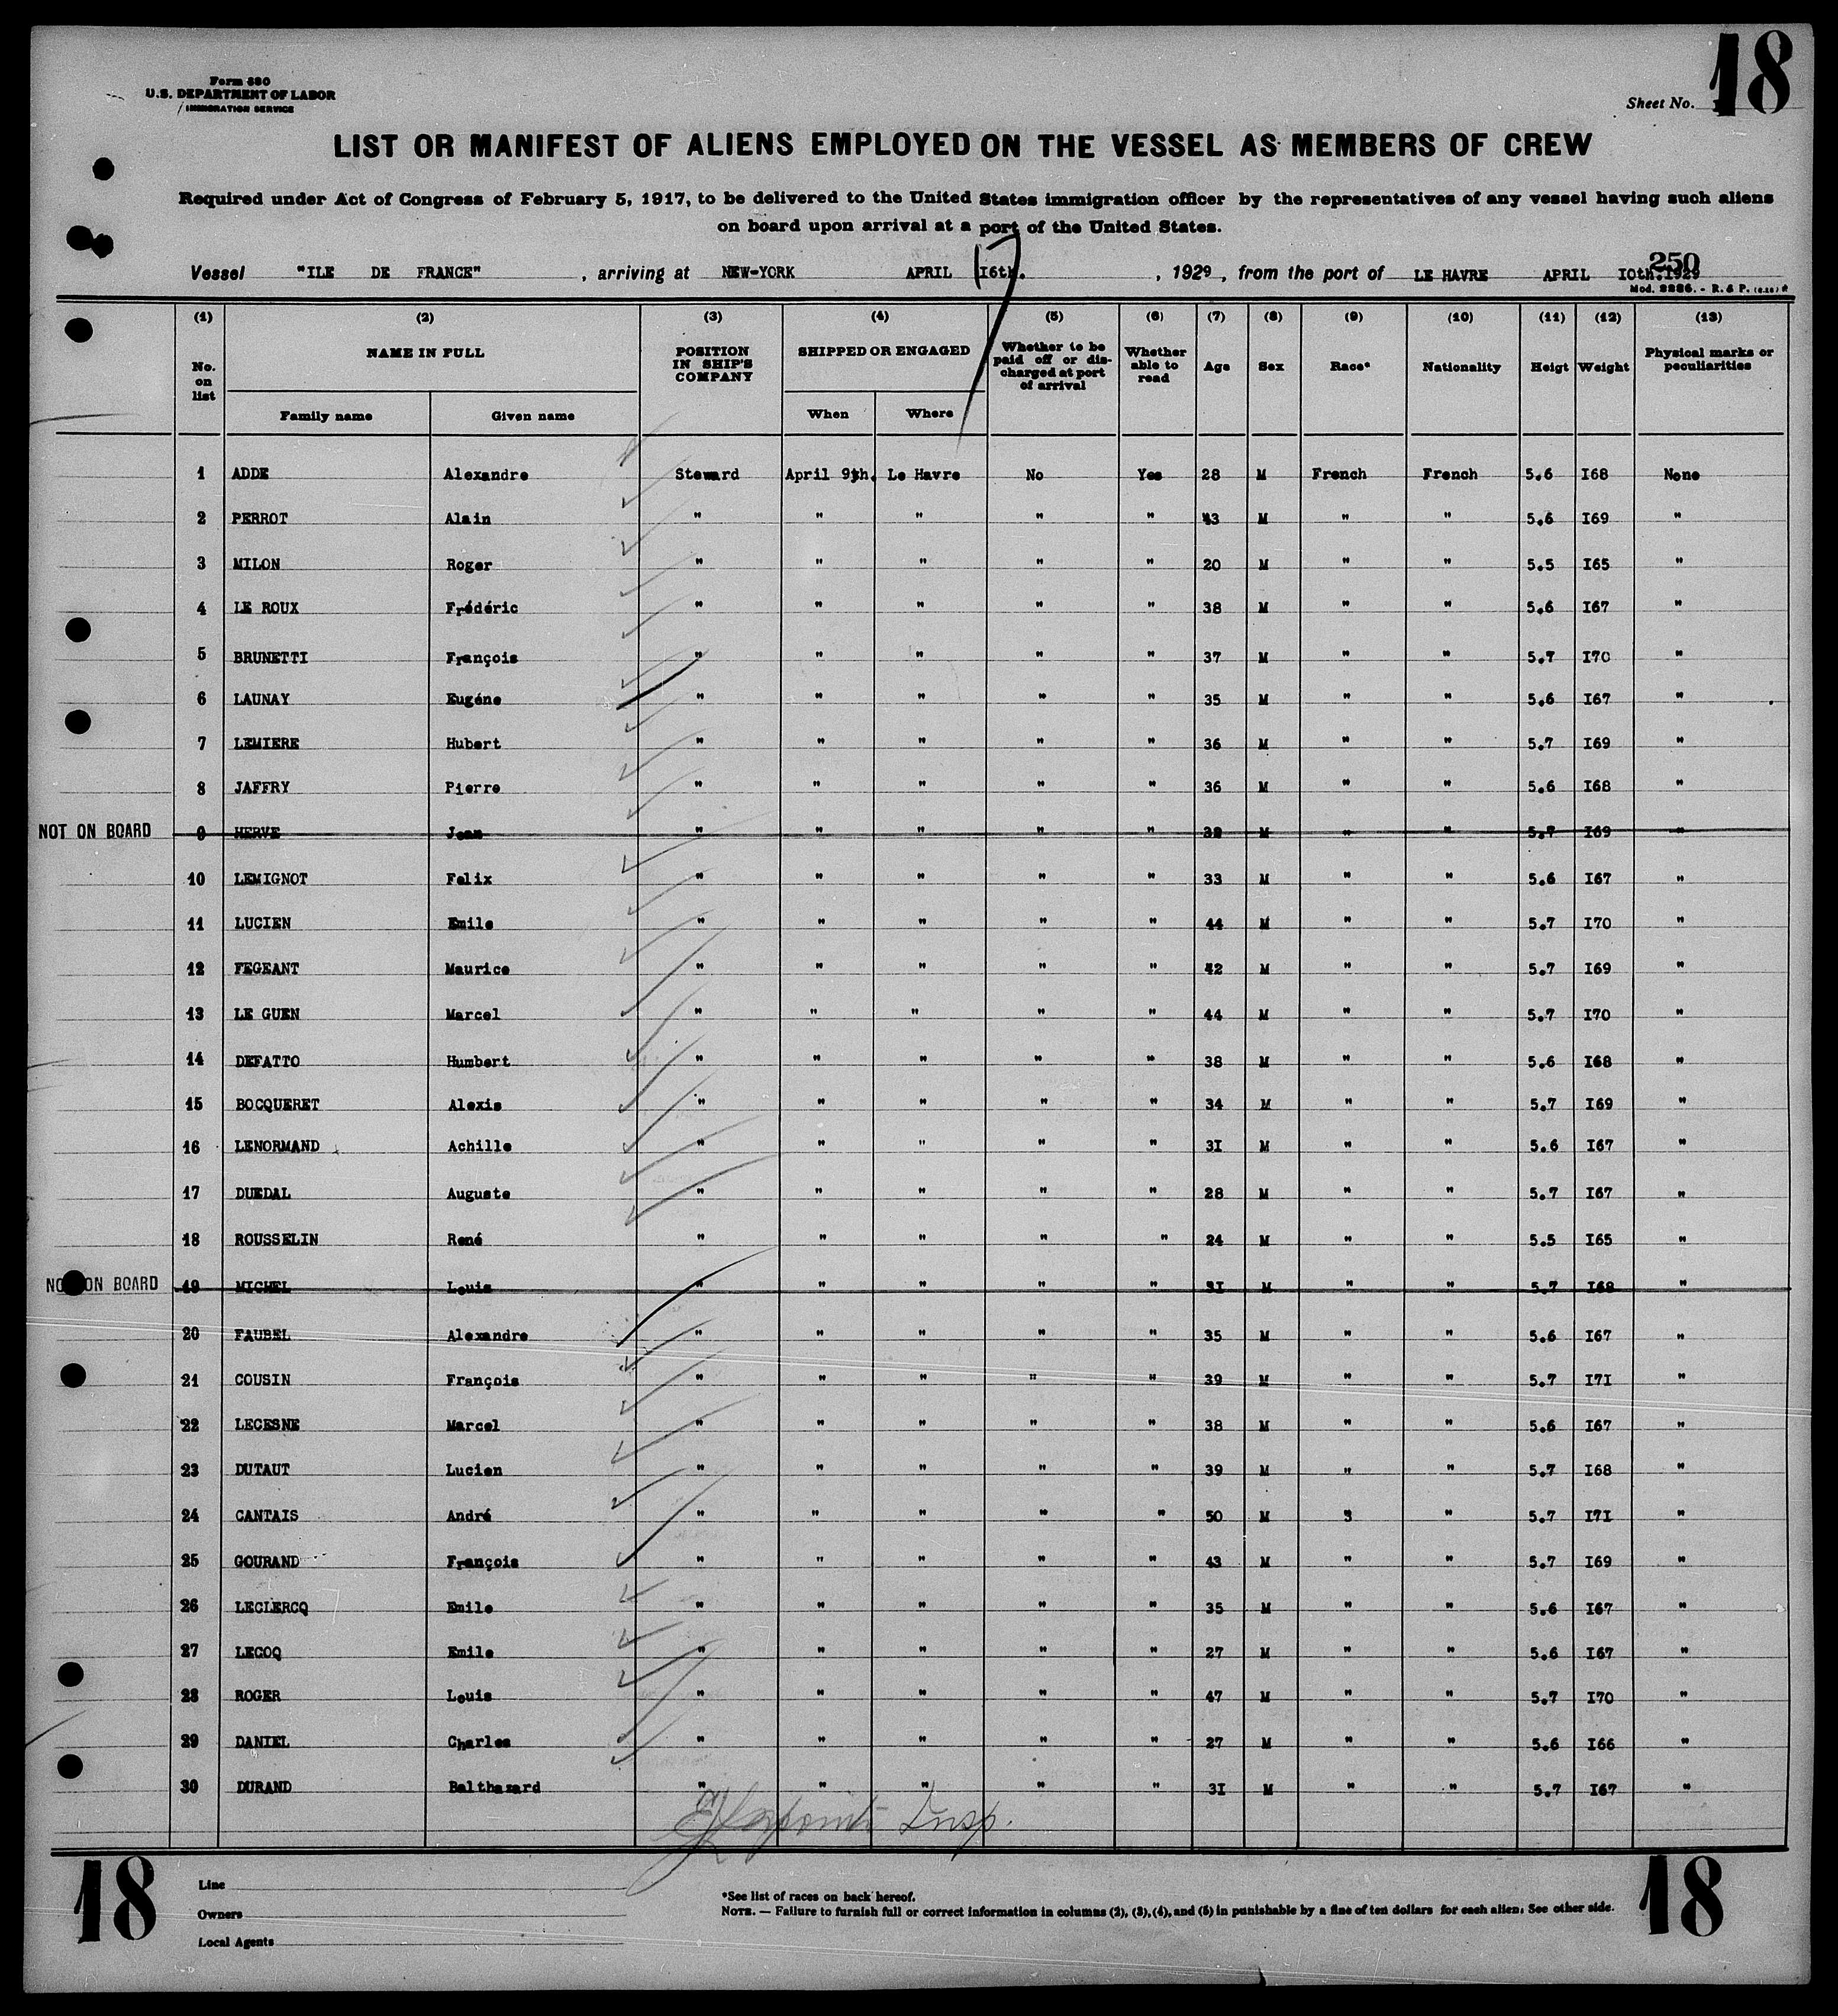 18
Form 680
U.S. DEPARTMENT OF LABOR
IMMIGRATION SERVICE
Sheet No.
LIST OR MANIFEST OF ALIENS EMPLOYED ON THE VESSEL AS MEMBERS OF CREW
Required under Act of Congress of February 5, 1917, to be delivered to the United States immigration officer by the representatives of any vessel having such aliens
on board upon arrival at a port of the United States.
250
Vessel "ILE DE FRANCE" , arriving at NEW-YORK APRIL I6th. , 1929 , from the port of LE HAVRE APRIL IOth.I929
17
Mod. 2286. - R. & P.
(1) (2) (3) (4) (5) (6) (7) (8) (9) (10) (11) (12) (13)
No. on list NAME IN FULL POSITION IN SHIP'S COMPANY SHIPPED OR ENGAGED Whether to be paid off or discharged at port of arrival Whether able to read Age Sex Race* Nationality Heigt Weight Physical marks or peculiarities
Family name Given name When Where
1 ADDE Alexandre Steward April 9th. Le Havre No Yes 28 M French French 5.6 I68 None
2 PERROT Alain " " " " " 43 M " " 5.6 I69 "
3 MILON Roger " " " " " 20 M " " 5.5 I65 "
4 LE ROUX Frédéric " " " " " 38 M " " 5.6 I67 "
5 BRUNETTI François " " " " " 37 M " " 5.7 I70 "
6 LAUNAY Eugéne " " " " " 35 M " " 5.6 I67 "
7 LEMIERE Hubert " " " " " 36 M " " 5.7 I69 "
8 JAFFRY Pierre " " " " " 36 M " " 5.6 I68 "
NOT ON BOARD 9 HERVE Jean " " " " " M " " 5.7 I69 "
10 LEMIGNOT Felix " " " " " 33 M " " 5.6 I67 "
11 LUCIEN Emile " " " " " 44 M " " 5.7 I70 "
12 FEGEANT Maurice " " " " " 42 M " " 5.7 I69 "
13 LE GUEN Marcel " " " " " 44 M " " 5.7 I70 "
14 DEFATTO Humbert " " " " " 38 M " " 5.6 I68 "
15 BOCQUERET Alexis " " " " " 34 M " " 5.7 I69 "
16 LENORMAND Achille " " " " " 3I M " " 5.6 I67 "
17 DUEDAL Auguste " " " " " 28 M " " 5.7 I67 "
18 ROUSSELIN René " " " " " 24 M " " 5.5 I65 "
NOT ON BOARD 19 MICHEL Louis " " " " " 3I M " " 5.7 I68 "
20 FAUBEL Alexandre " " " " " 35 M " " 5.6 I67 "
21 COUSIN François " " " " " 39 M " " 5.7 I7I "
22 LECESNE Marcel " " " " " 38 M " " 5.6 I67 "
23 DUTAUT Lucien " " " " " 39 M " " 5.7 I68 "
24 CANTAIS André " " " " " 50 M 3 " 5.7 I7I "
25 GOURAND François " " " " " 43 M " " 5.7 I69 "
26 LECLERCQ Emile " " " " " 35 M " " 5.6 I67 "
27 LECOQ Emile " " " " " 27 M " " 5.6 I67 "
28 ROGER Louis " " " " " 47 M " " 5.7 I70 "
29 DANIEL Charles " " " " " 27 M " " 5.6 I66 "
30 DURAND Balthazard " " " " " 3I M " " 5.7 I67 "
Insp.
18
Line
Owners
Local Agents
*See list of races on back hereof.
NOTE. — Failure to furnish full or correct information in columns (2), (3), (4), and (5) in punishable by a fine of ten dollars for each alien. See other side.
18